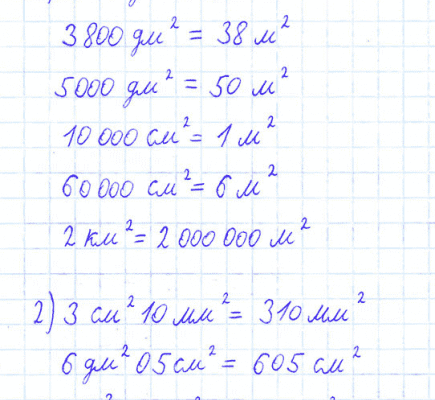 3800 дм² = 38 м²
5000 дм² = 50 м²
10 000 см² = 1 м²
60 000 см² = 6 м²
2 км² = 2 000 000 м²
2) 3 см² 10 мм² = 310 мм²
6 дм² 05 см² = 605 см²